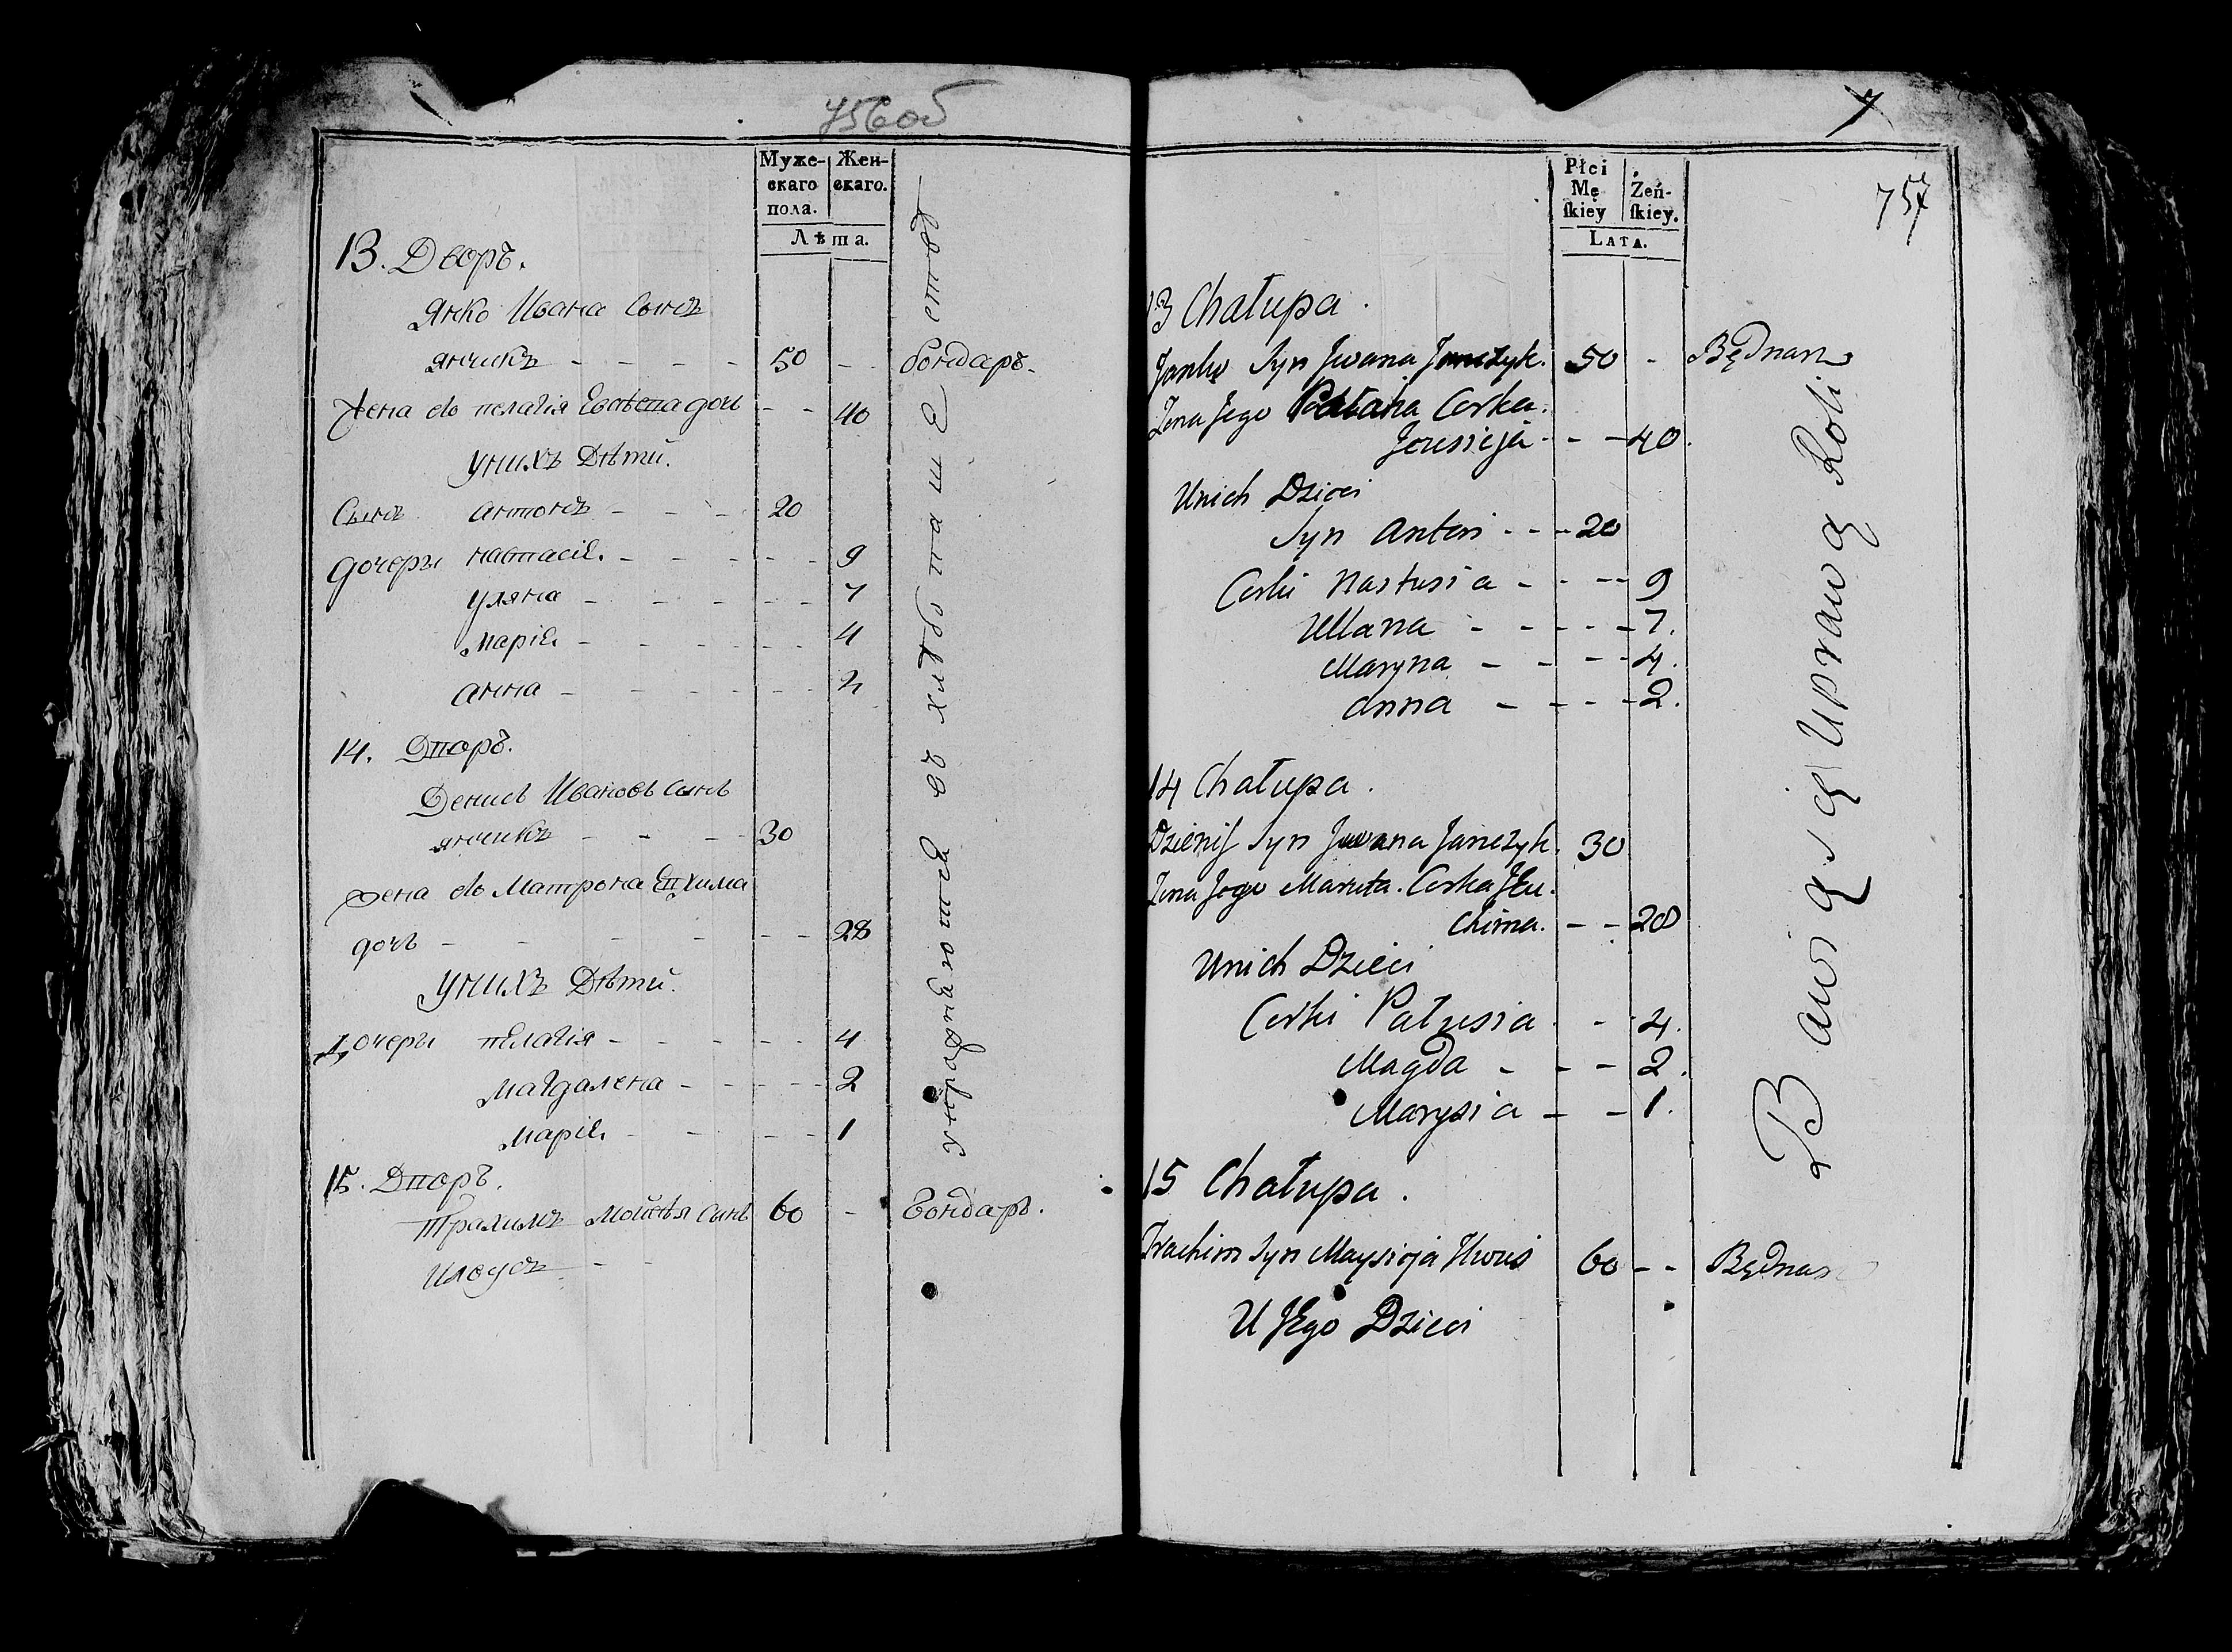 756об
Муже-
скаго
пола.
Жен-
скаго.
Лѣта.
13. Дворъ.
Янко Ивана Сынъ
янчикъ - - - - 50 - бондаръ.
Жена его пелагія Евсѣепа дочь - - 40
унихъ Дѣти.
Сынъ антонъ - - - 20
дочеры настасіе. - - - - - 9
уляна - - - - - 7
маріе. - - - - - 4
анна - - - - - - 2
14. Дпоръ.
Денисъ Ивановъ сынъ
янчикъ - - - 30
жена его Матрона Епхима
дочъ - - - - - - 28
унихъ Дѣти.
дочеры пелагія - - - - - 4
магдалена - - - - - 2
маріе. - - - - 1
15. Дпоръ.
трахимъ мойсѣя сынъ 60 - бондаръ.
Илоусъ - -
упродпаютца въ хлѣбопа
7
757
Płci
Mę
ſkiey
Żeń-
ſkiey.
LATA.
13 Chałupa.
Janko Syn Jwana Janczyk. 50 - Będnarz
Zona Jego Corka.
Jeusieja - - - 40.
Unich Dzieci
Syn Anton - - - 20
Corki Nastusia - - - - 9
Ullana - - - - - 7.
Maryna - - - - 4.
Anna - - - - 2.
14 Chałupa.
Dzieniſ Syn Jwana Janczyk. 30
Zona Jego Maruta. Corka JEu.
chima. - - 28
Unich Dzieci
Corki Pałusia - - 4.
Magda - - - 2.
Marysia - - 1.
15 Chałupa.
Trachim Syn Maysieja Iłwus 60 - - Będnarz
U JEgo Dzieci
Bawią się Uprawą Roli